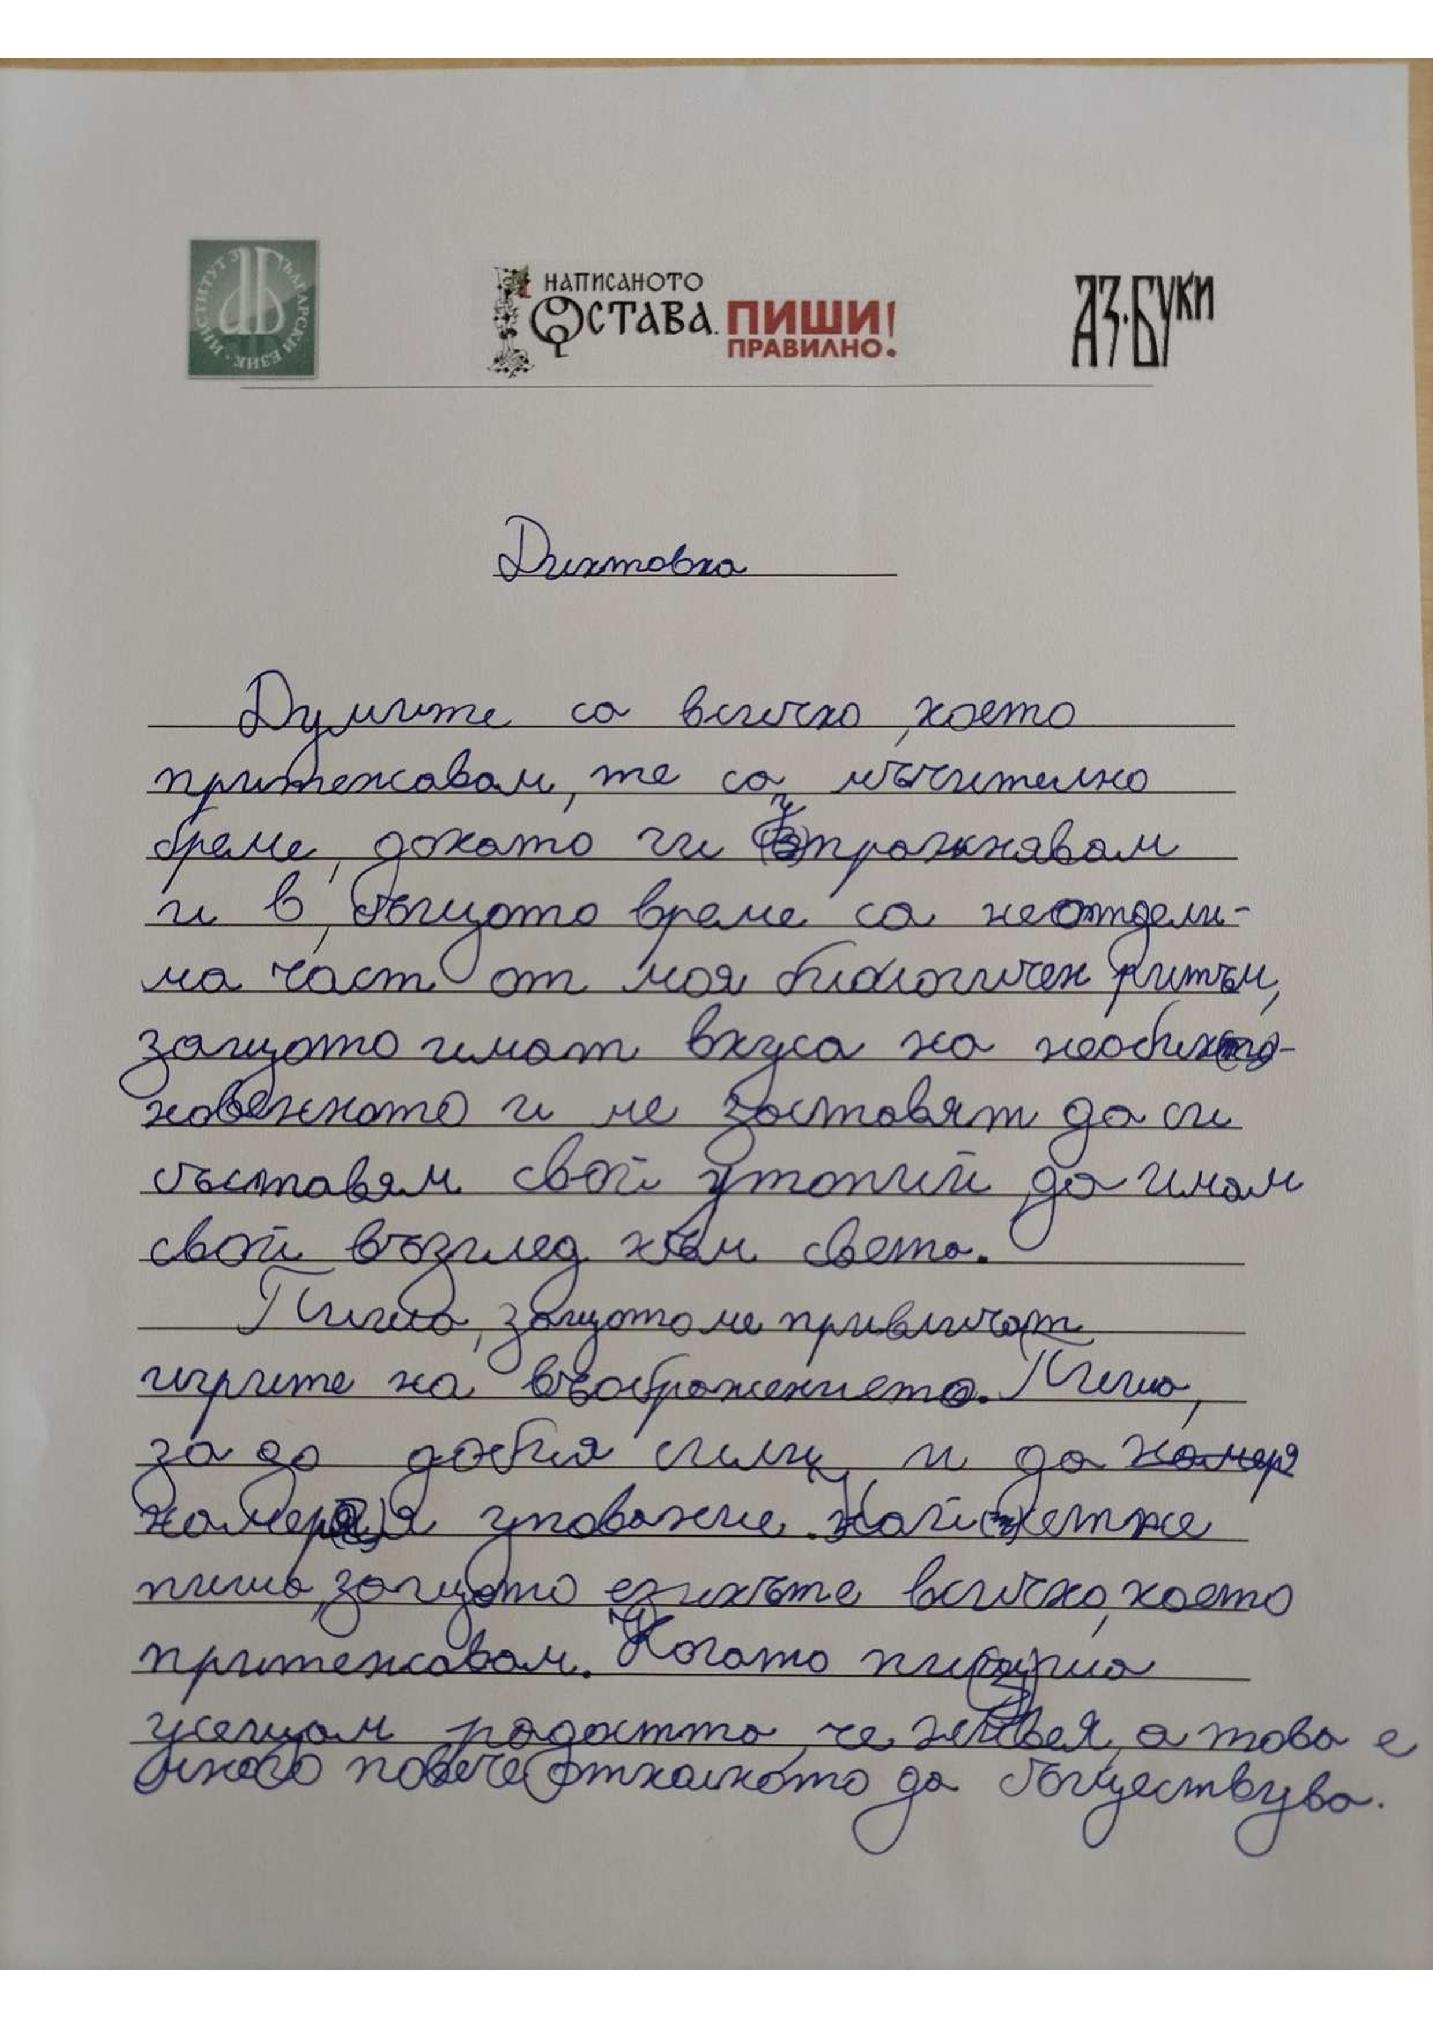 ИНСТИТУТ ЗА БЪЛГАРСКИ ЕЗИК
НАПИСАНОТО
ОСТАВА. ПИШИ
ПРАВИЛНО!
АЗ·БУКИ
Диктовка
Думите са всичко, което
притежавам, те са мъчително
бреме, докато ги упражнявам
и в същото време са неотдели-
ма част от моя биологичен ритъм,
защото имат вкуса на необик-
новенното и ме заставят да си
съставям свой утопий, да имам
свой възглед към света.
Пиша, защото ме привличат
игрите на въображението. Пиша,
за да добия сили и да намеря
намеря упование. Най
пиша, защото езикъте всичко, което
притежавам. Когато пиша
усещам радостта, че живея, а това е
много повече отколкото да съществува.